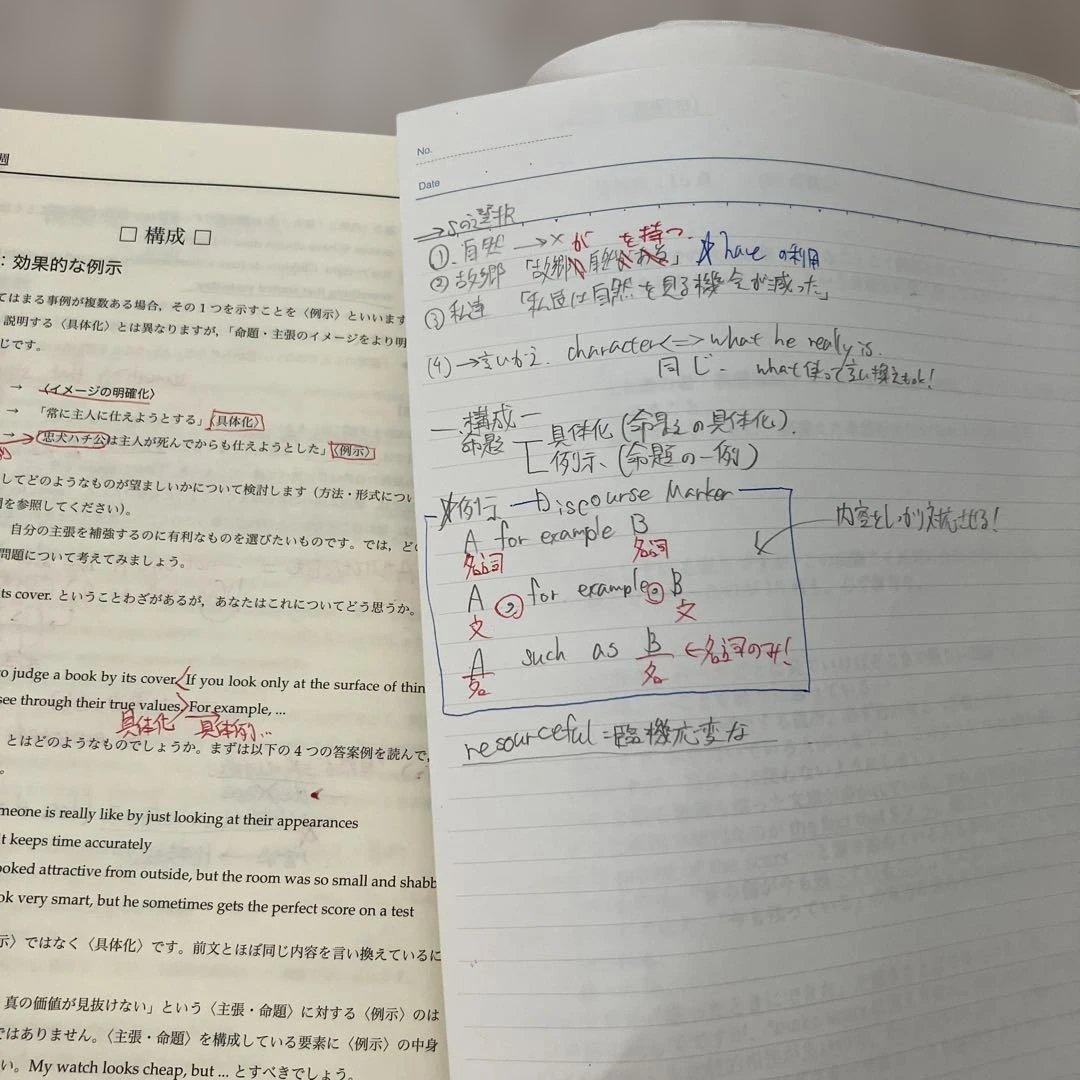 週
□ 構成 □
：効果的な例示
てはまる事例が複数ある場合，その１つを示すことを〈例示〉といいます
説明する〈具体化〉とは異なりますが，「命題・主張のイメージをより明
じです。
→ 〈イメージの明確化〉
→ 「常に主人に仕えようとする」〈具体化〉
→ 「忠犬ハチ公は主人が死んでからも仕えようとした」〈例示〉
してどのようなものが望ましいかについて検討します（方法・形式につい
を参照してください）。
自分の主張を補強するのに有利なものを選びたいものです。では，ど
問題について考えてみましょう。
ts cover. ということわざがあるが，あなたはこれについてどう思うか。
o judge a book by its cover. If you look only at the surface of thin
see through their true values. For example, ...
具体化 具体例…
とはどのようなものでしょうか。まずは以下の４つの答案例を読んで，
。
meone is really like by just looking at their appearances
t keeps time accurately
ooked attractive from outside, but the room was so small and shabb
ok very smart, but he sometimes gets the perfect score on a test
示〉ではなく〈具体化〉です。前文とほぼ同じ内容を言い換えているに
真の価値が見抜けない」という〈主張・命題〉に対する〈例示〉のは
ではありません。〈主張・命題〉を構成している要素に〈例示〉の中身
い。My watch looks cheap, but ... とすべきでしょう。
No.
Date
→Sの選択
①. 自然 →× が を持つ.
② 故郷 「故郷 自然がある」 ☆have の利用
③ 私達 「私達は自然を見る機会が減った」
(4) →言いかえ. character<=>what he really is.
同じ. what使って言い換えもok!
―構成―
命題 具体化(命題の具体化).
例示、(命題の一例)
☆例示 ―Discourse Marker―
A for example B
名詞 名詞
内容をしっかり対応させる!
A , for example , B
文 文
A such as B ←名詞のみ!
名 名
resourceful = 臨機応変な